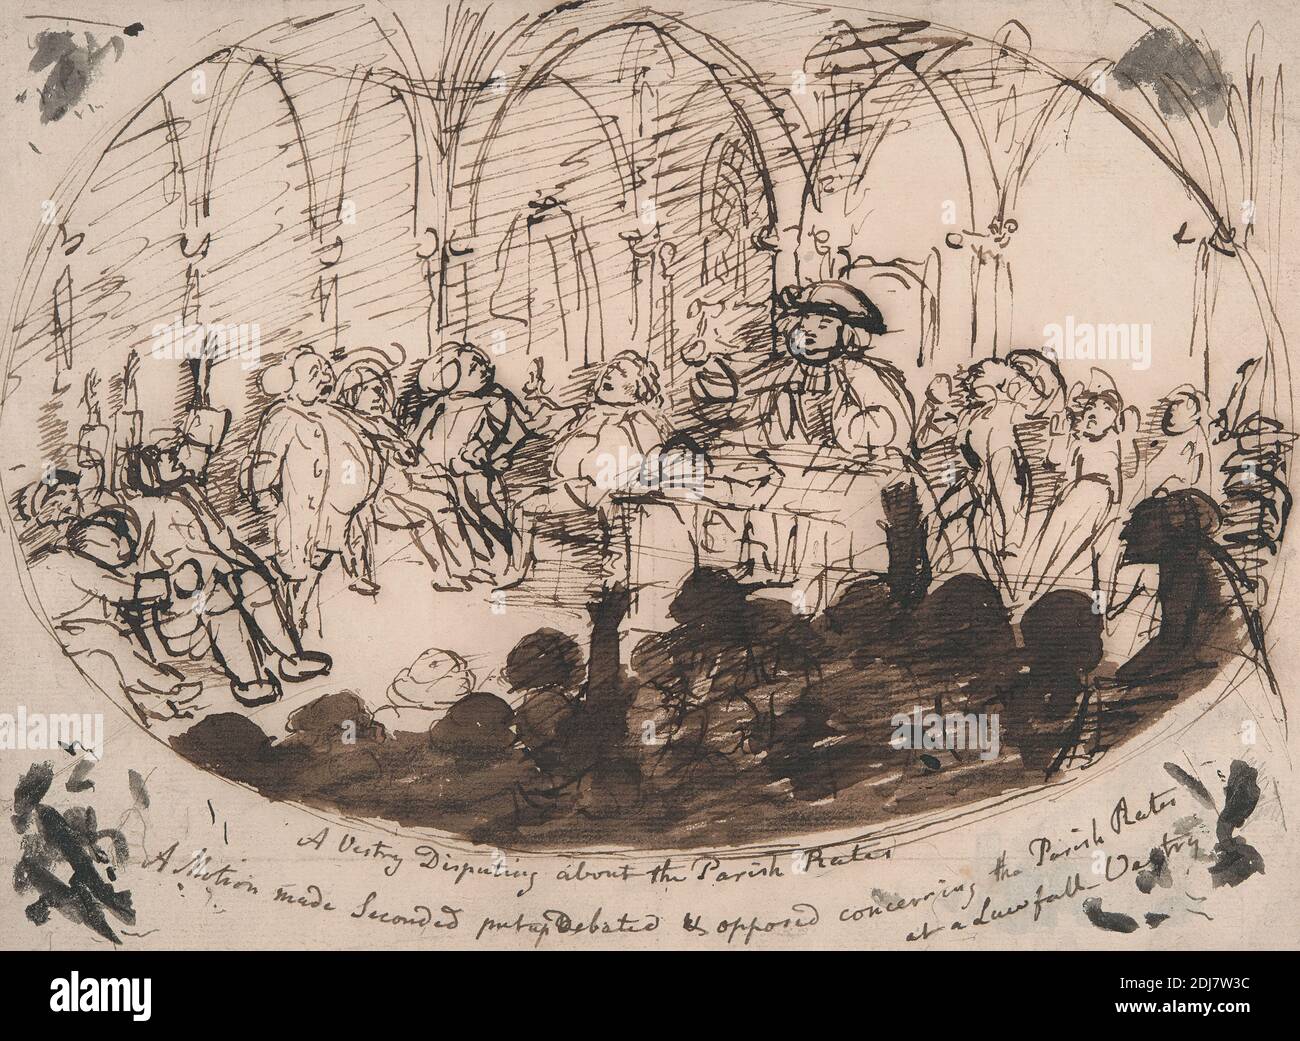 A Vestry Disputing about the Parish Rates
A Motion made Seconded put up Debated & opposed concerning the Parish Rates
at a Lawfull Vestry
alamy
Image ID: 2DJ7W3C
www.alamy.com